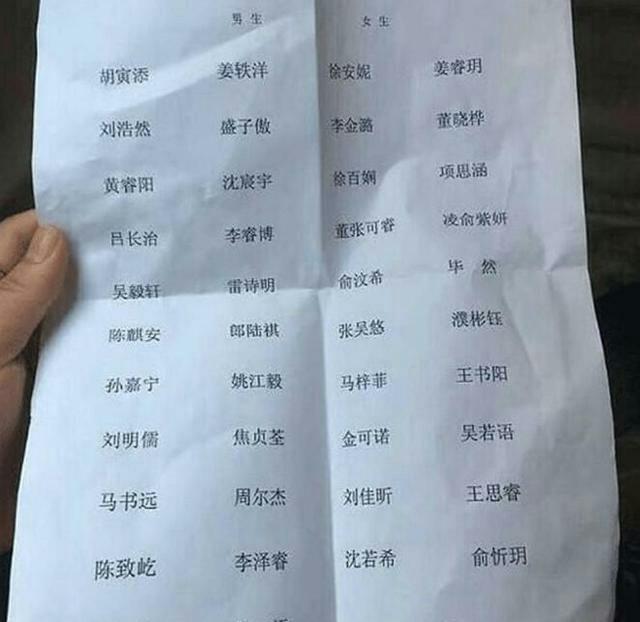 男生 女生
胡寅添 姜轶洋 徐安妮 姜睿玥
刘浩然 盛子傲 李金潞 董晓桦
黄睿阳 沈宸宇 徐百娴 项思涵
吕长治 李睿博 董张可睿 凌俞紫妍
吴毅轩 雷诗明 俞汶希 毕 然
陈麒安 郎陆祺 张吴悠 濮彬钰
孙嘉宁 姚江毅 马梓菲 王书阳
刘明儒 焦贞荃 金可诺 吴若语
马书远 周尔杰 刘佳昕 王思睿
陈致屹 李泽睿 沈若希 俞忻玥